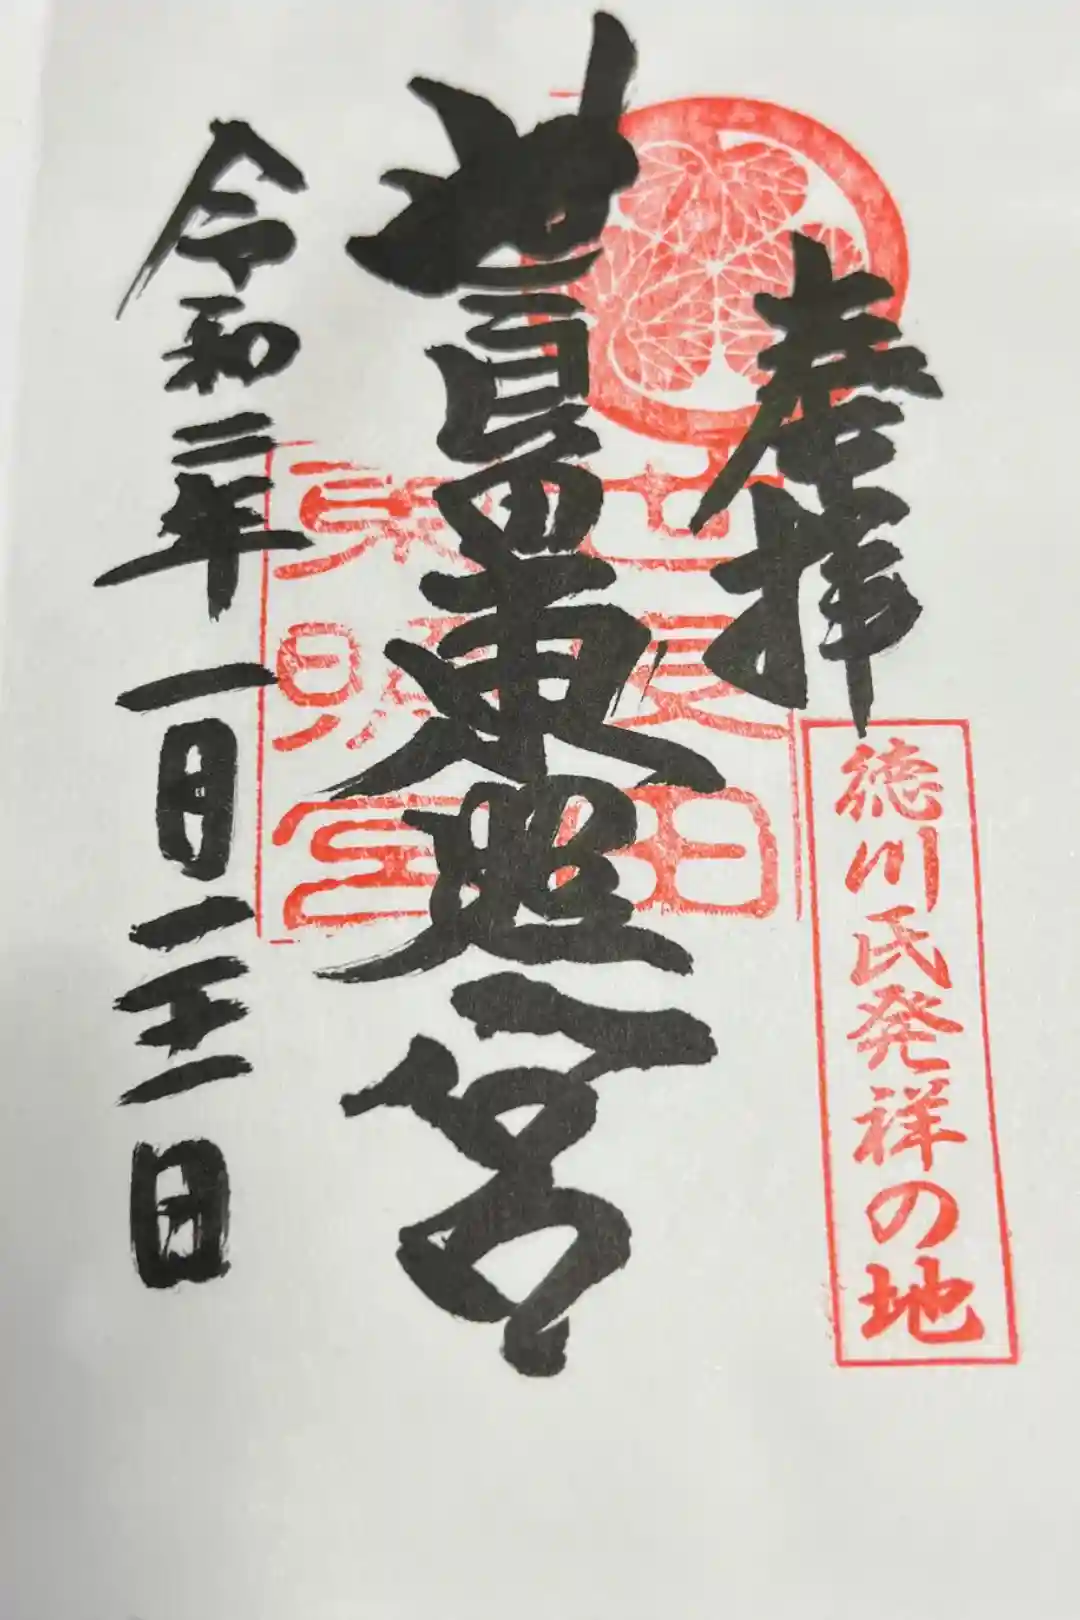 奉拝
徳川氏発祥の地
世良田東照宮
令和二年一月二十三日